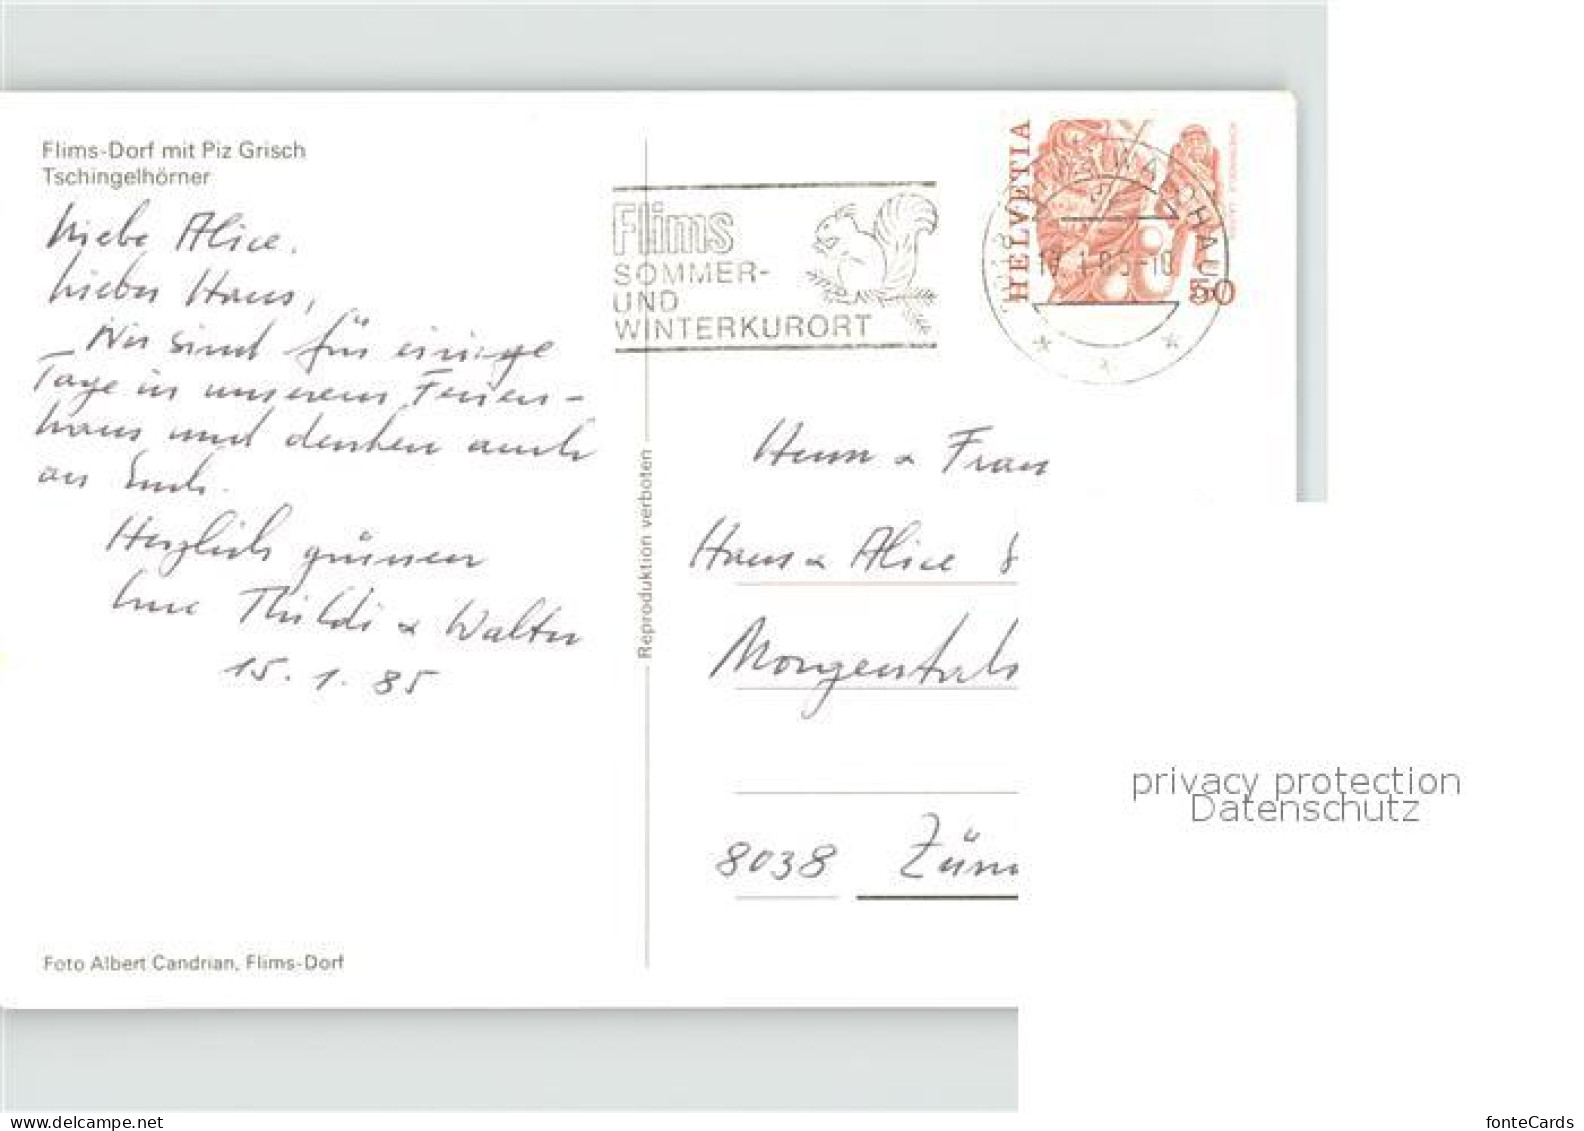 Flims-Dorf mit Piz Grisch
Tschingelhörner
Liebe Alice.
Lieber Hans,
Wir sind für einige
Tage in unserem Ferien-
haus und denken auch
an Euch.
Herzlich grüssen
Eure Thildi & Walter
15. 1. 85
Foto Albert Candrian, Flims-Dorf
Reproduktion verboten
Flims
SOMMER-
UND
WINTERKURORT
HELVETIA
50
WALDHAUS
Herrn & Frau
Hans & Alice
Morgental
8038 Züri
privacy protection
Datenschutz
www.delcampe.net
fonteCards